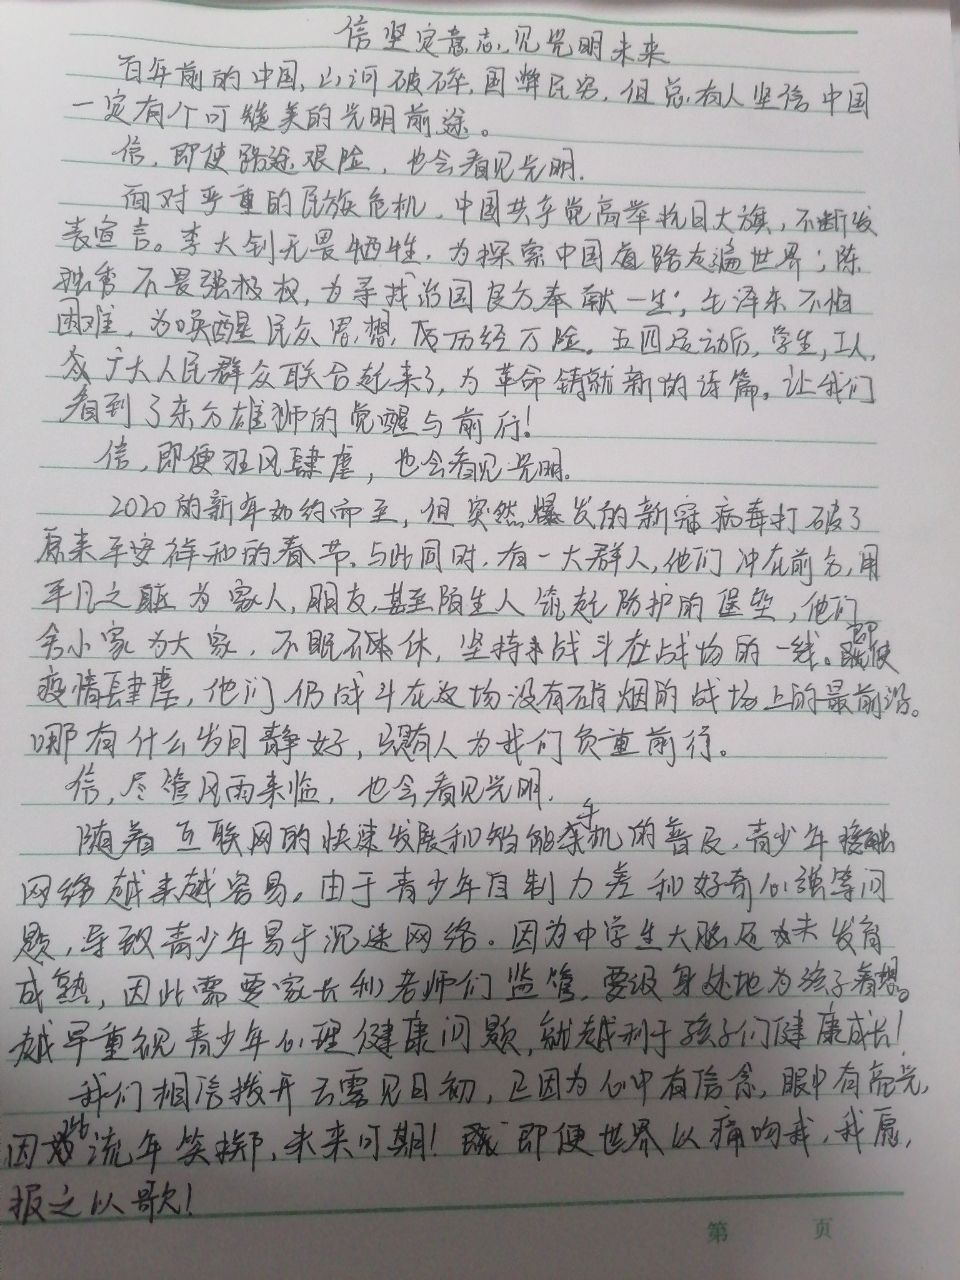 信坚定意志,见光明未来
百年前的中国,山河破碎,国弊民穷,但总有人坚信中国
一定有个可赞美的光明前途。
信,即使路途艰险,也会看见光明.
面对严重的民族危机,中国共产党高举抗日大旗,不断发
表宣言。李大钊无畏牺牲,为探索中国道路友遍世界;陈
独秀不畏强极权,为寻找治国良方奉献一生;毛泽东不怕
困难,为唤醒民众思想,历经万险。五四运动后,学生,工人,
广大人民群众联合起来了,为革命铸就新的诗篇。让我们
看到了东方雄狮的觉醒与前行!
信,即便狂风肆虐,也会看见光明。
2020的新年如约而至,但突然爆发的新冠病毒打破了
原来平安祥和的春节。与此同时,有一大群人,他们冲在前方,用
平凡之躯为家人,朋友,甚至陌生人筑起防护的堡垒,他们
舍小家为大家,不眠不休,坚持来战斗在战场的一线。即使
疫情肆虐,他们仍战斗在这场没有硝烟的战场上的最前沿。
哪有什么岁月静好,只有人为我们负重前行。
信,尽管风雨来临,也会看见光明.
随着互联网的快速发展和智能手机的普及,青少年接触
网络越来越容易。由于青少年自制力差和好奇心强等问
题,导致青少年易于沉迷网络。因为中学生大脑还未发育
成熟,因此需要家长和老师们监管,要设身处地为孩子着想。
越早重视青少年心理健康问题,就越利于孩子们健康成长!
我们相信拨开云雾见日初,正因为心中有信念,眼中有亮光,
因此流年笑掷,未来可期!即便世界以痛吻我,我愿,
报之以歌!
第 页